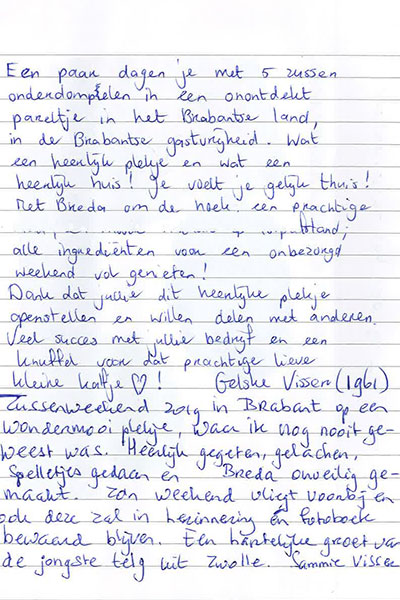 Een paar dagen je met 5 zussen
onderdompelen in een onontdekt
pareltje in het Brabantse land,
in de Brabantse gastvrijheid. Wat
een heerlijk plekje en wat een
heerlijk huis! Je voelt je gelijk thuis!
Met Breda om de hoek. een prachtige
stand;
alle ingrediënten voor een onbezorgd
weekend vol genieten!
Dank dat jullie dit heerlijke plekje
openstellen en willen delen met anderen.
Veel succes met jullie bedrijf en een
knuffel voor dat prachtige lieve
kleine katje ♡! Gelske Visser (1961)
Zussenweekend 2019 in Brabant op een
wondermooi plekje, waar ik nog nooit ge-
weest was. Heerlijk gegeten, gelachen,
spelletjes gedaan en Breda onveilig ge-
maakt. Zon weekend vliegt voorbij en
ook deze zal in herinnering én fotoboek
bewaard blijven. Een hartelijke groet van
de jongste telg uit Zwolle. Sammie Visser